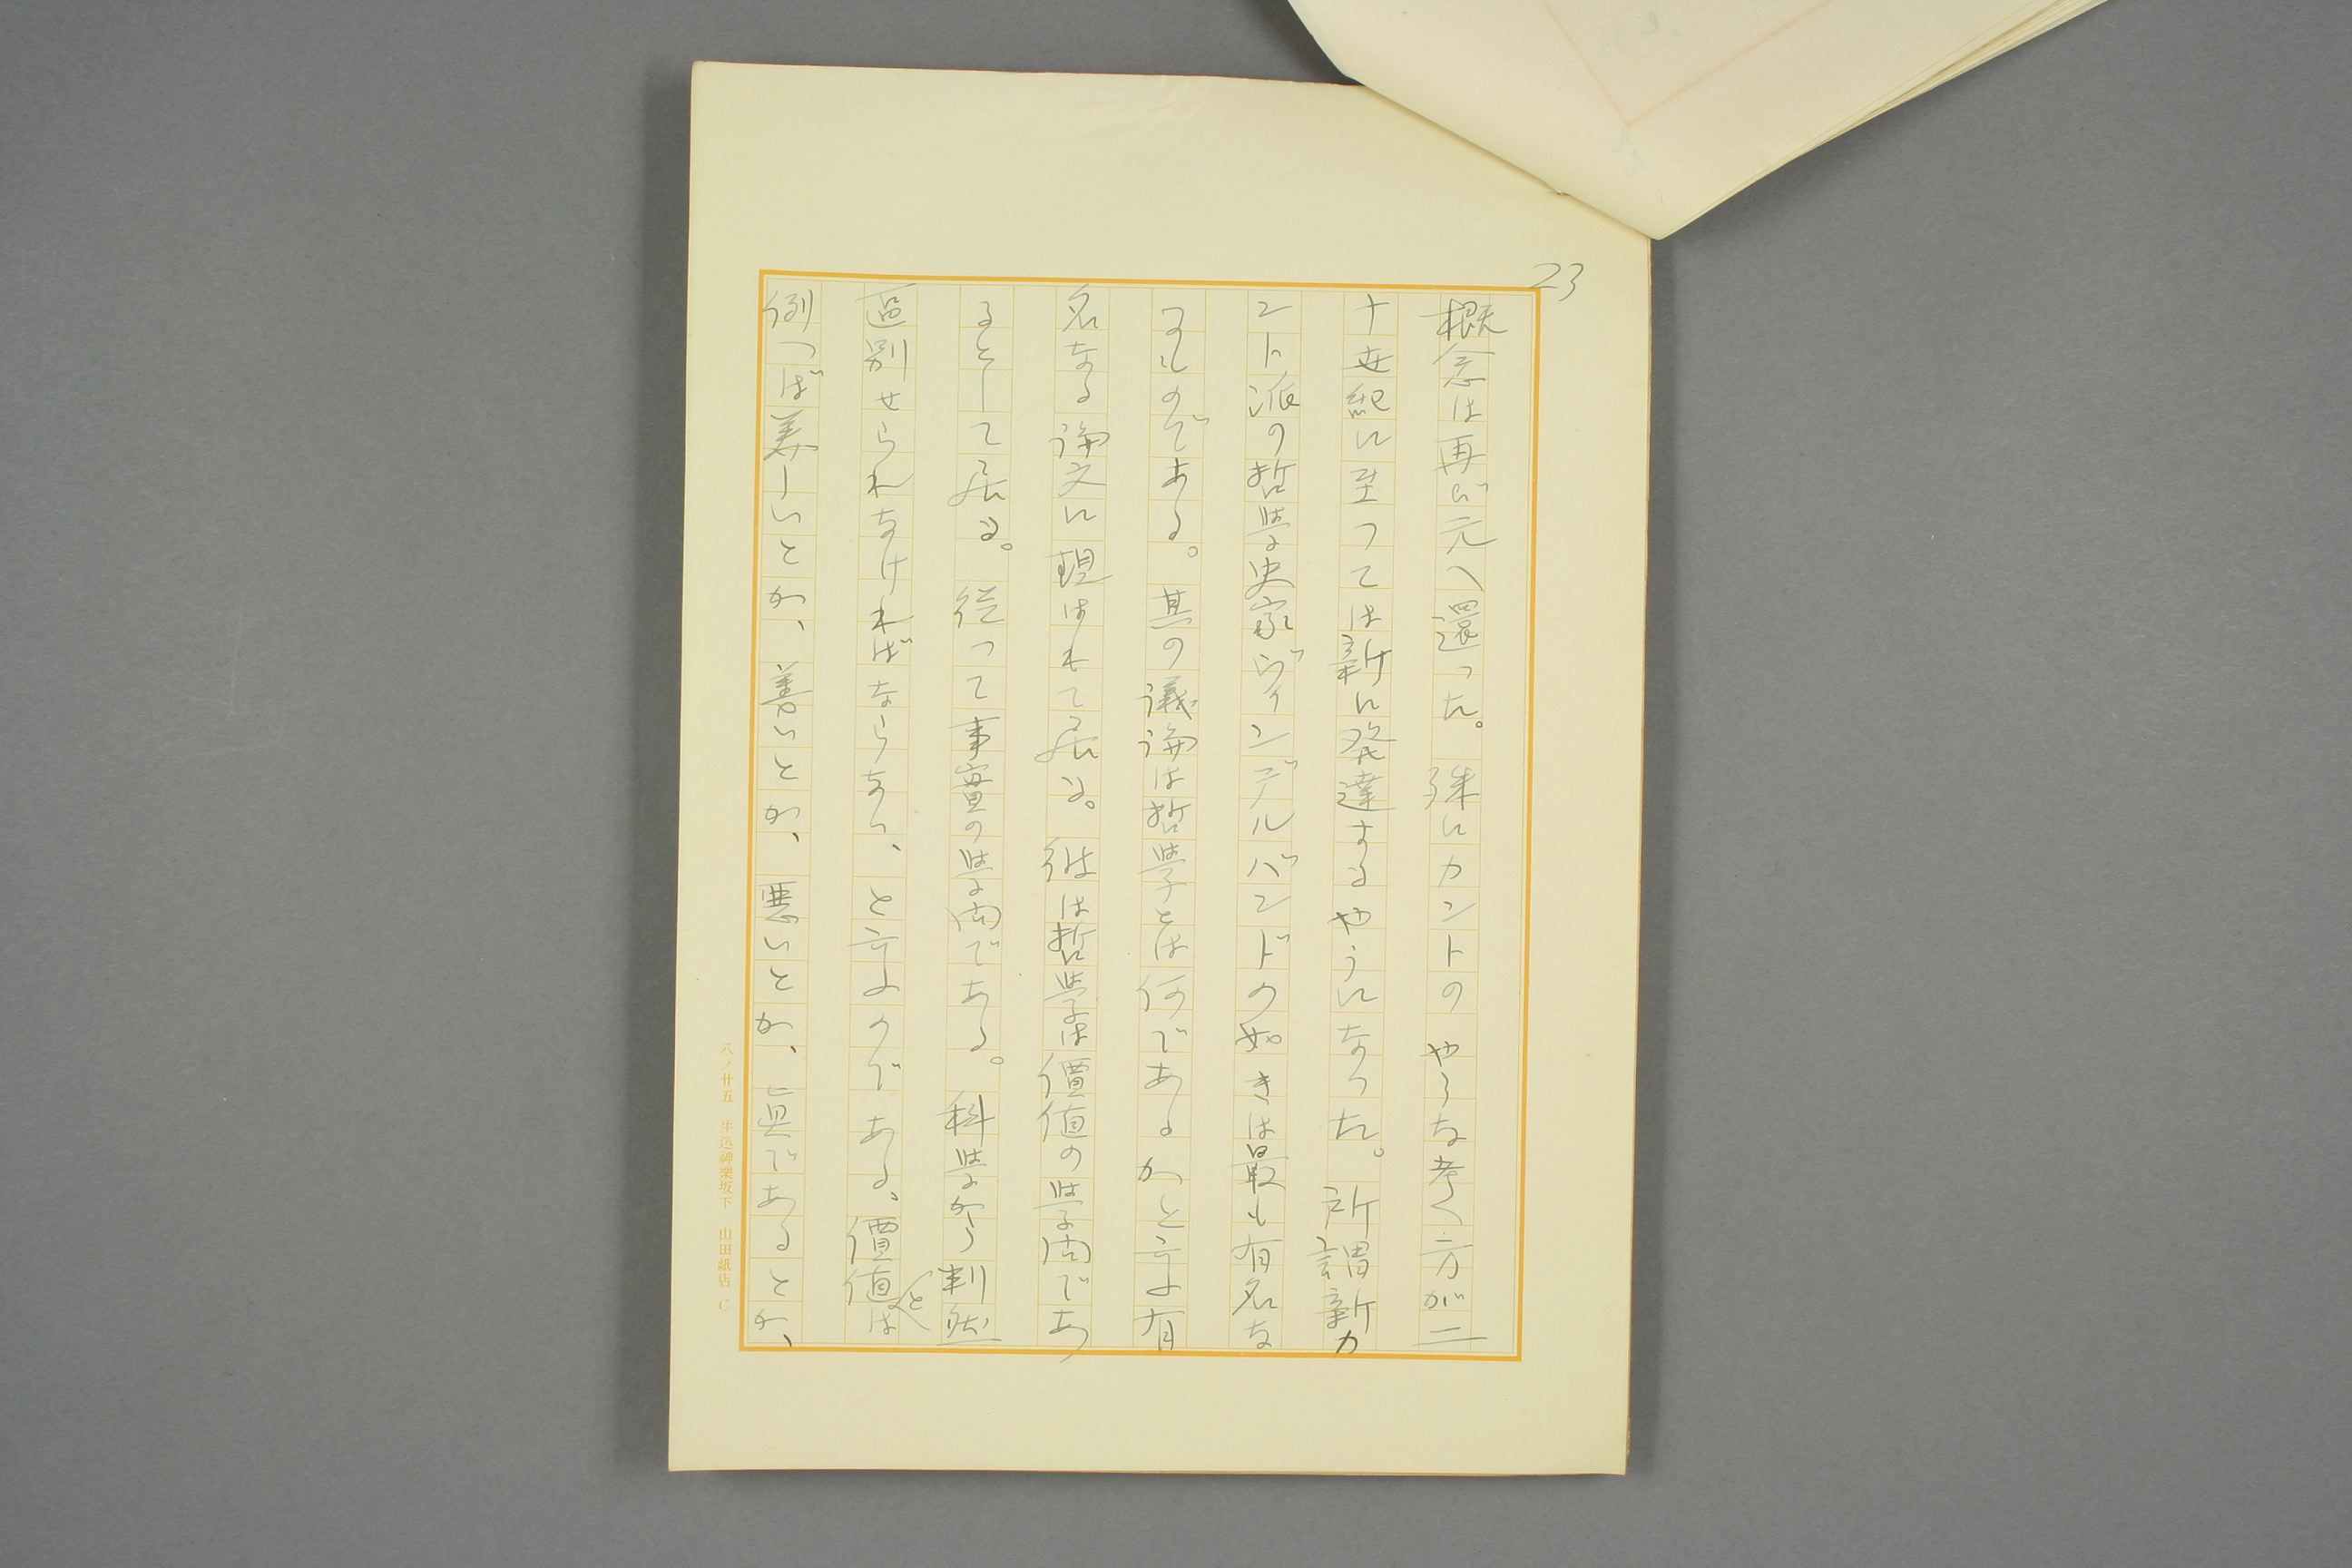 23
概念は再び元へ還つた。殊にカントのやうな考へ方が二
十世紀に至つては新に発達するやうになつた。所謂新カ
ント派の哲学史家ヴィンデルバンドの如きは最も有名な
るものである。其の議論は哲学とは何であるかと云ふ有
名なる論文に現はれて居る。彼は哲学は價値の学問であ
るとして居る。従つて事實の学問である。科学から判然
區別せられなければならない、と云ふのである、價値とは
例へば美しいとか、善いとか、悪いとか、眞であるとか、
八ノ廿五 牛込神樂坂下 山田紙店 C